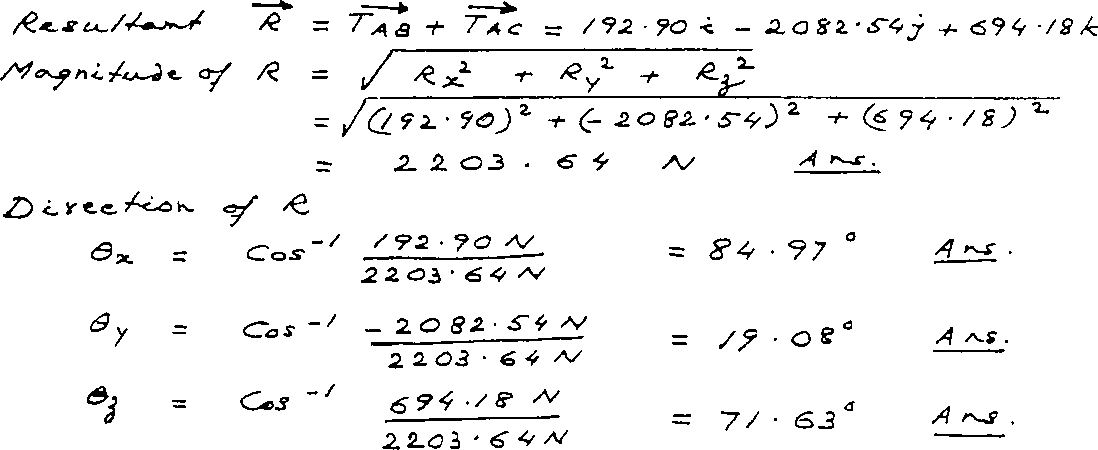 Resultant R⃗ = T⃗AB + T⃗AC = 192.90 i - 2082.54j + 694.18k
Magnitude of R = √(Rx² + Ry² + Rz²)
= √((192.90)² + (-2082.54)² + (694.18)²)
= 2203.64 N Ans.
Direction of R
θx = Cos⁻¹ 192.90 N / 2203.64 N = 84.97° Ans.
θy = Cos⁻¹ -2082.54 N / 2203.64 N = 19.08° Ans.
θz = Cos⁻¹ 694.18 N / 2203.64 N = 71.63° Ans.